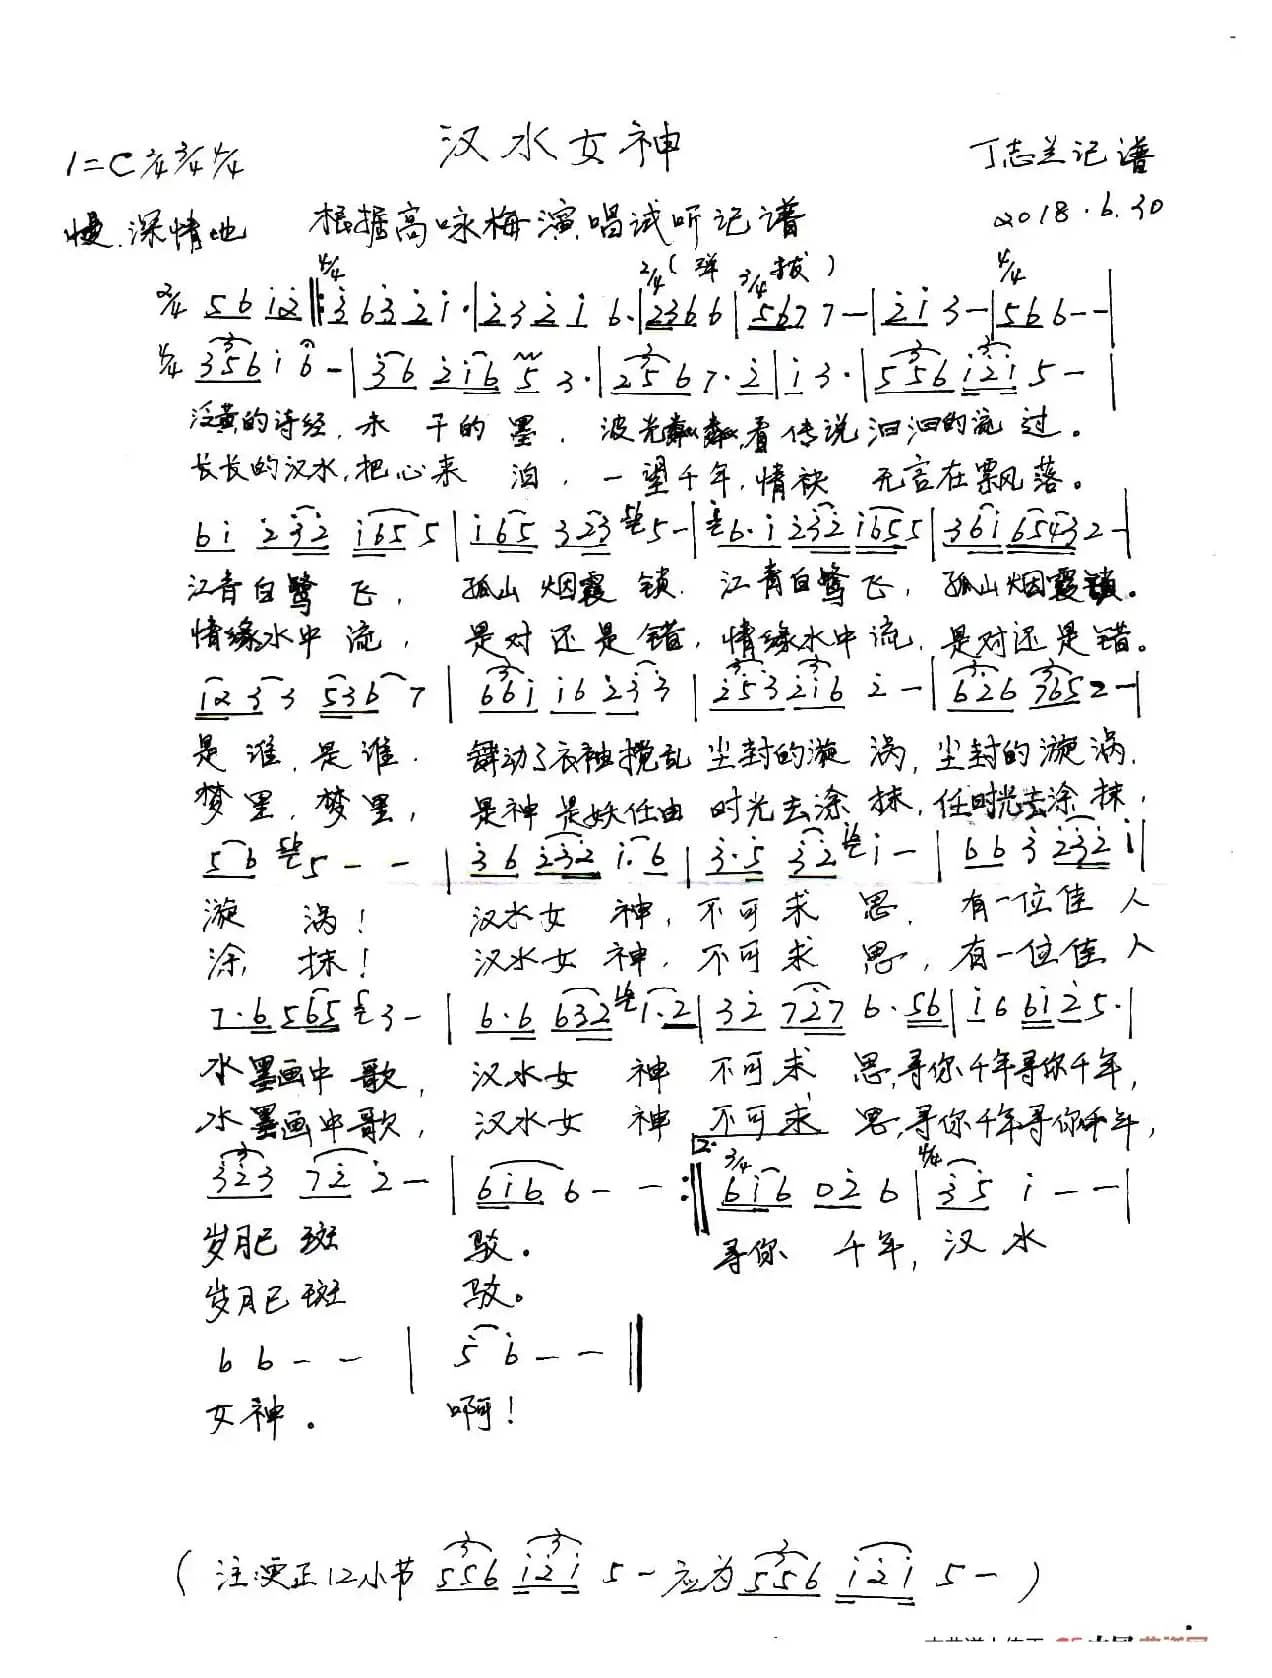 汉水女神
1=C 2/4 3/4 4/4
丁志兰记谱
慢.深情地 根据高咏梅演唱试听记谱
2018.6.30
4/4 2/4 (弹 3/4 拔) 4/4
2/4 5 6 i 2̇ ‖: 3̇ 6 3̇ 2̇ i · | 2̇ 3 2̇ i 6 · | 2̇ 3 6 6 | 5 6 7 7 — | 2̇ i 3 — | 5 6 6 — — |
4/4 3 5 6 i 6 — | 3̇ 6 2̇ i 6 5 3 · | 2 5 6 7 · 2̇ | i 3 · | 5 5 6 i 2̇ i 5 — |
泛黄的诗经,未干的墨,波光粼粼,看传说汩汩的流过。
长长的汉水,把心来泊,一望千年,情袂无言在飘落。
6 i 2̇ 3̇ 2̇ i 6 5 5 | i 6 5 3 2 3 5 — | 6 · i 2̇ 3̇ 2̇ i 6 5 5 | 3 6 i 6 5 4 3 2 — |
江青白鹭飞,孤山烟霞锁.江青白鹭飞,孤山烟霞锁。
情缘水中流,是对还是错,情缘水中流,是对还是错。
i 2 3 3 5 3 6 7 | 6 6 i i 6 2̇ 3̇ 3 | 2̇ 5 3 2̇ i 6 2̇ — | 6 2 6 7 6 5 2 — |
是谁,是谁.舞动了衣袖搅乱尘封的漩涡,尘封的漩涡,
梦里,梦里,是神是妖任由时光去涂抹,任时光去涂抹,
5 6 5 — — | 3̇ 6 2̇ 3̇ 2̇ i · 6 | 3̇ · 5̇ 3̇ 2̇ i — | 6 6 3̇ 2̇ 3̇ 2̇ i |
漩涡!汉水女神,不可求思,有一位佳人
涂抹!汉水女神,不可求思,有一位佳人
7 · 6 5 6 5 3 — | 6 · 6 6 3 2 i · 2 | 3 2̇ 7 2̇ 7 6 · 5 6 | i 6 6 i 2̇ 5 · |
水墨画中歌,汉水女神不可求思,寻你千年寻你千年,
水墨画中歌,汉水女神不可求思,寻你千年寻你千年,
2. 3/4 4/4
3̇ 2̇ 3 7 2̇ 2̇ — | 6 i 6 6 — — :‖ 6 i 6 0 2̇ 6 | 3̇ 5 i — — |
岁月已斑驳。寻你千年,汉水
岁月已斑驳。
6 6 — — | 5̇ 6̇ — — ‖
女神。啊!
(注:更正12小节 5 5 6 i 2̇ i 5 — 应为 5 5 6 i 2̇ i 5 — )